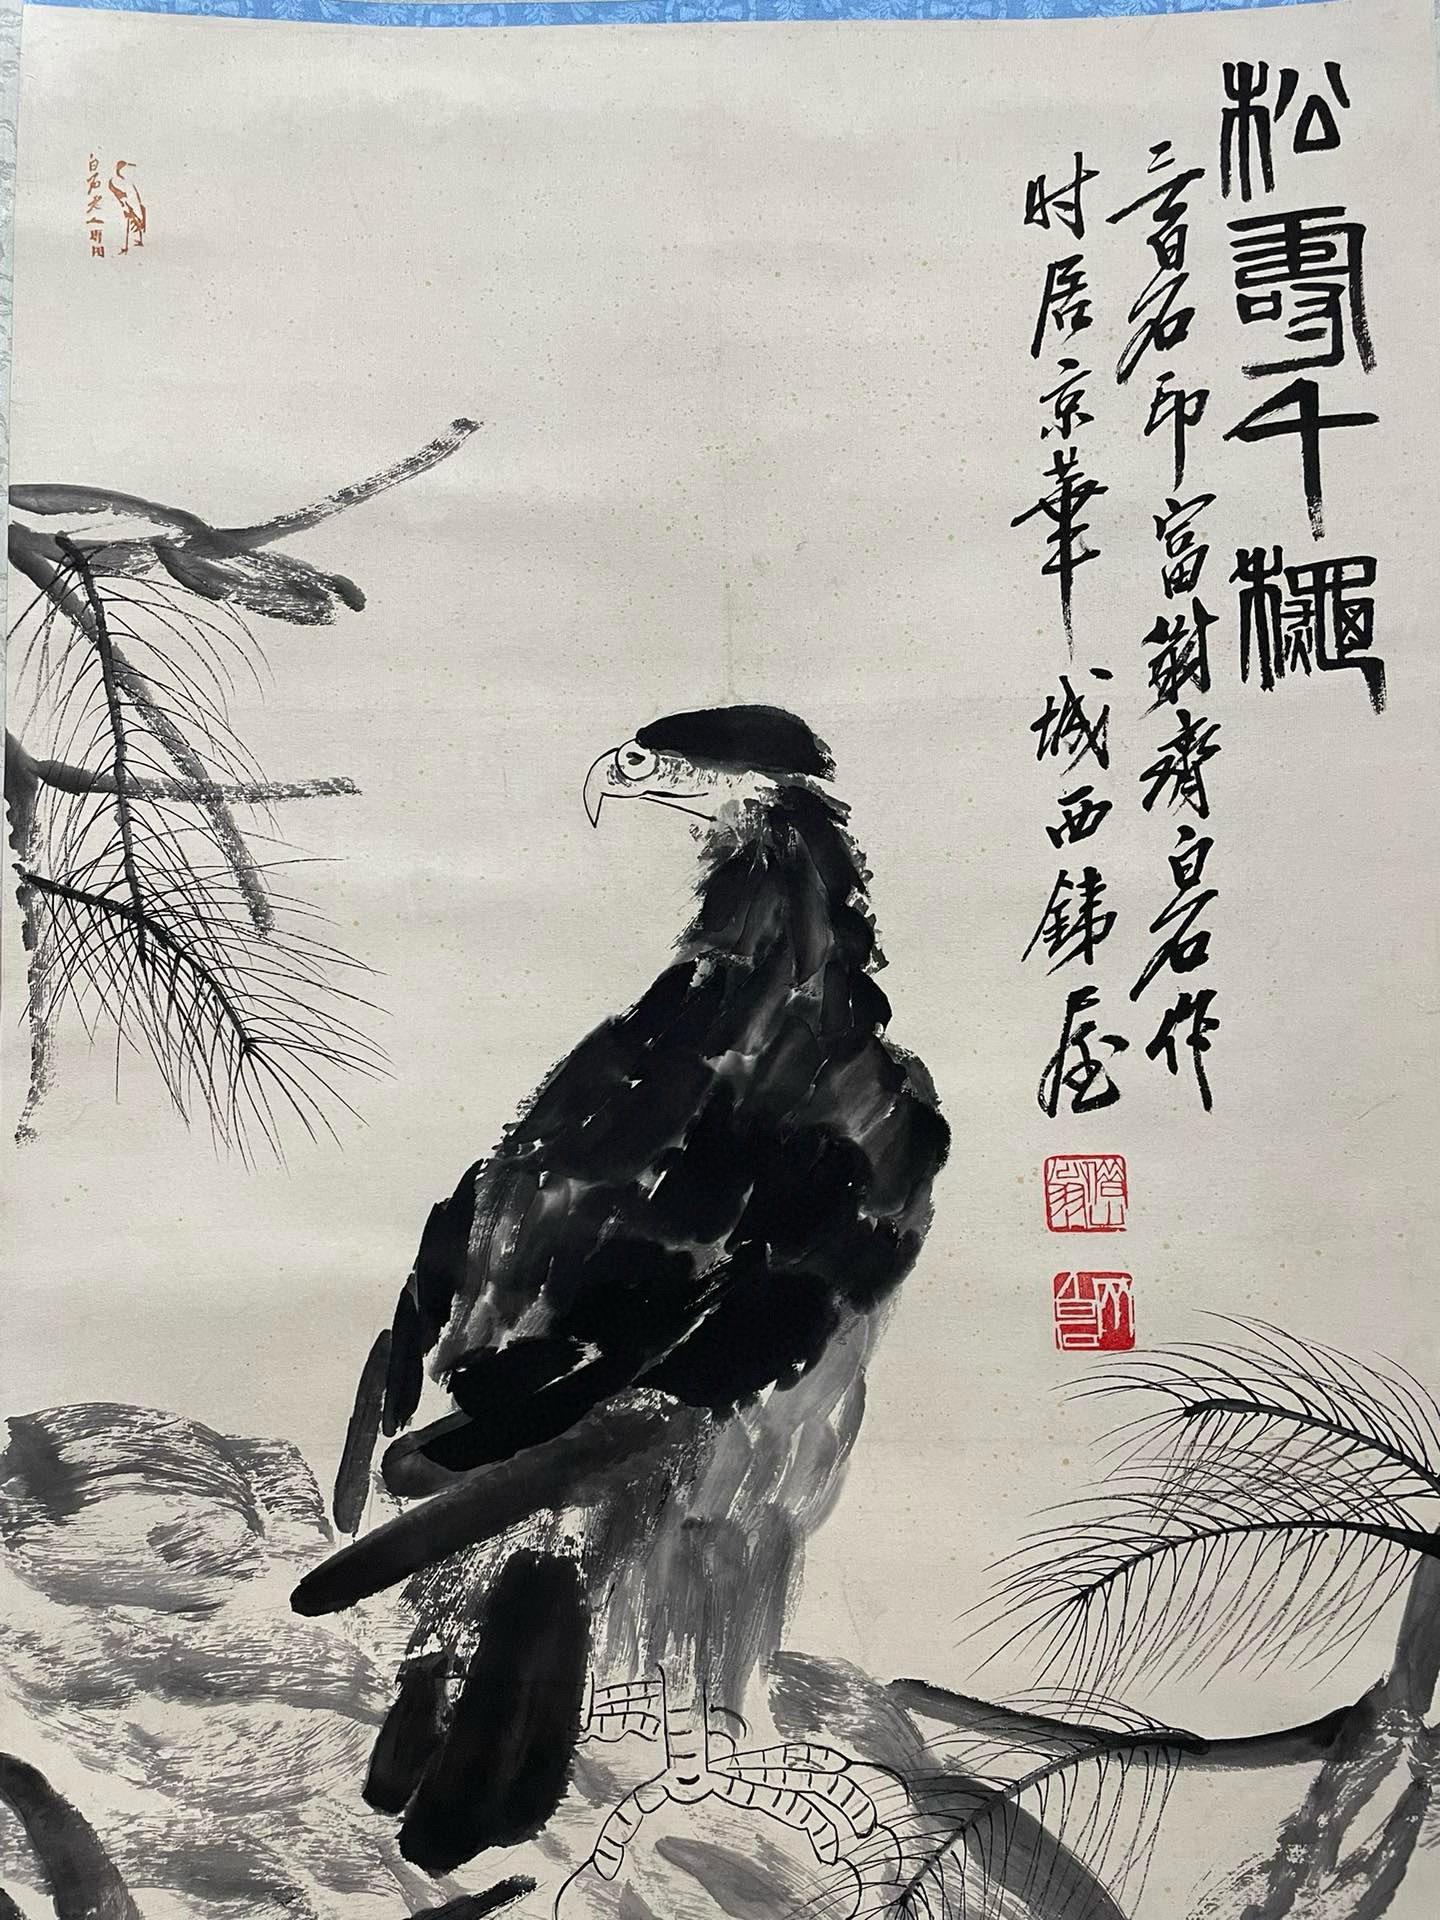 松壽千穐
三百石印富翁齊白石作
时居京華城西鉄屋
白石老人自用